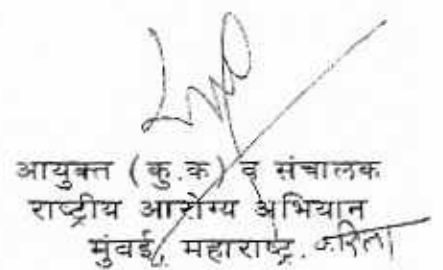 आयुक्त (कु.क) व संचालक
राष्ट्रीय आरोग्य अभियान
मुंबई, महाराष्ट्र. करिता